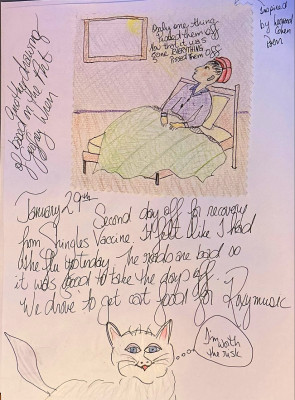 Only one thing
pissed them off
Now that it was
gone EVERYTHING
pissed them off
inspired
by Leonard
Cohen
Poem
Another drawing
of based on the Poet
January 29th.
Second day off for recovery
from Shingles Vaccine. It felt like I had
the flu yesterday. The roads are bad so
it was good to take the days off.
We drove to get cat food for Roxymusic
I'm worth
the risk